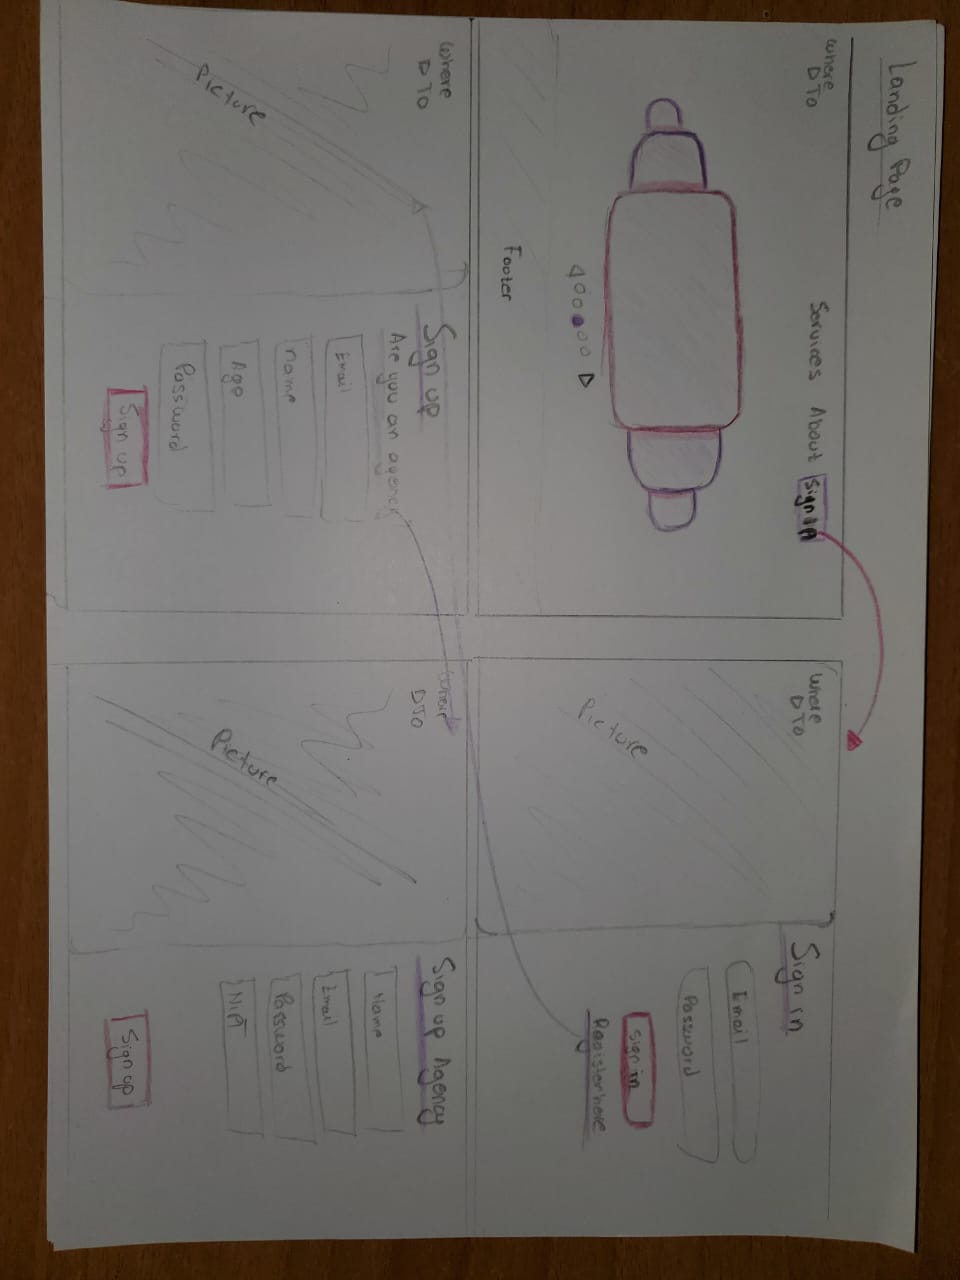 Landing Page
Where
D TO
Services About Sign in
Footer
Where
D TO
Picture
Sign in
Email
Password
Sign in
Register here
Where
D TO
Picture
Sign up
Are you an agency
Email
name
Age
Password
Sign up
Where
D TO
Picture
Sign up Agency
Name
Email
Password
Sign up